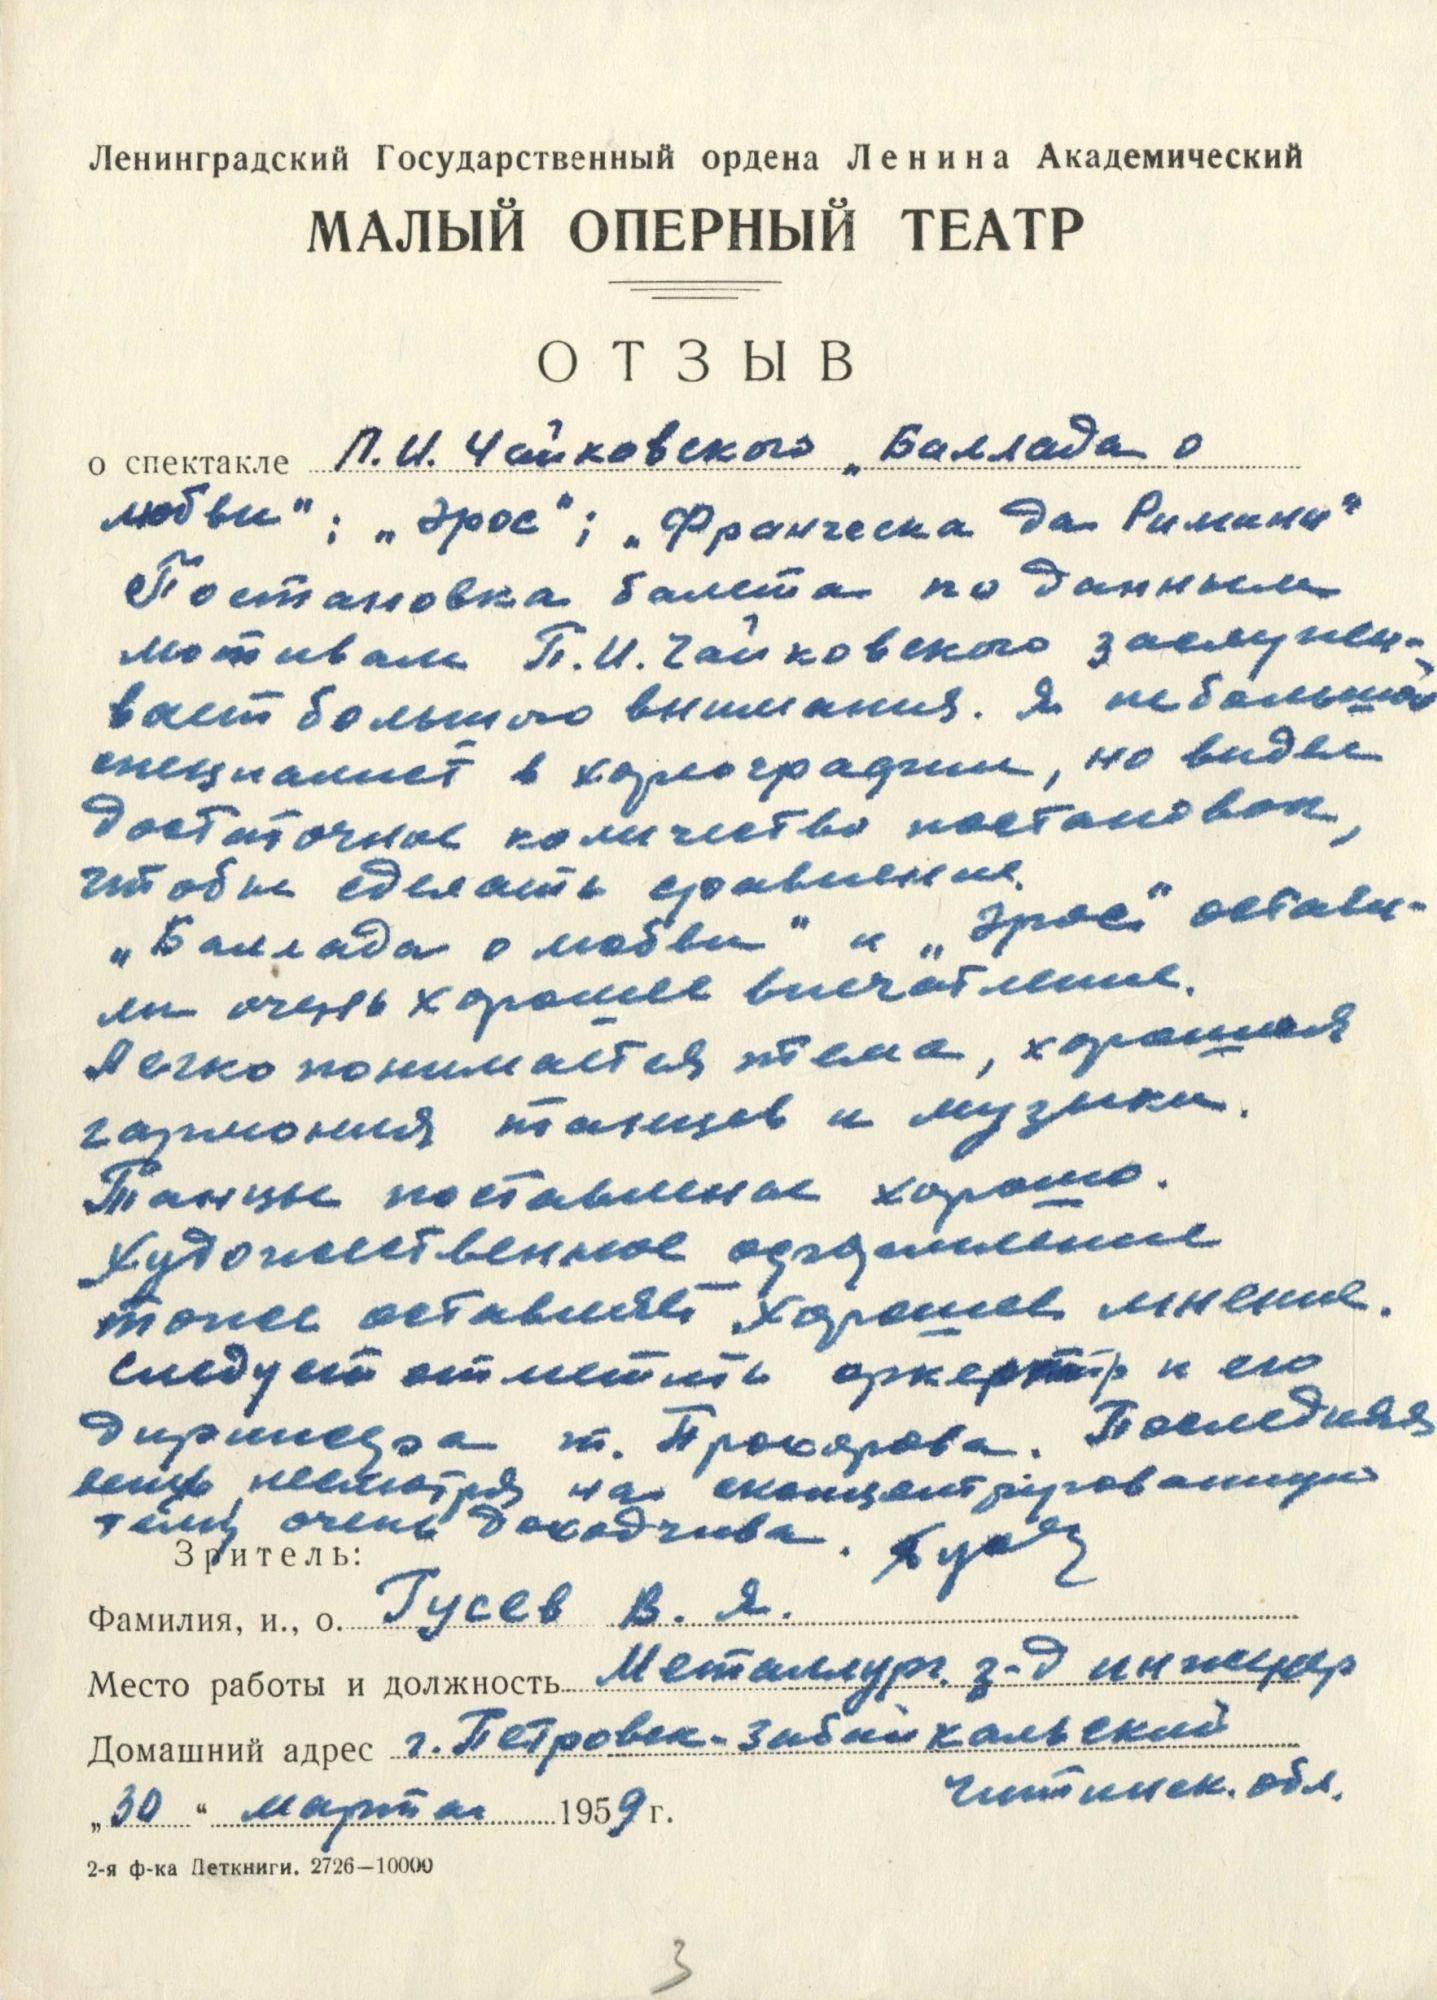 Ленинградский Государственный ордена Ленина Академический
МАЛЫЙ ОПЕРНЫЙ ТЕАТР
ОТЗЫВ
о спектакле П.И. Чайковского „Баллада о
любви"; „Эрос"; „Франческа да Римини"
Постановка балета по данным
мотивам П.И. Чайковского заслужи-
вает большого внимания. Я небольшой
специалист в хореографии, но видел
достаточное количество постановок,
чтобы сделать сравнение.
„Баллада о любви" и „Эрос" остави-
ли очень хорошее впечатление.
Легко понимается тема, хорошая
гармония танцев и музыки.
Танцы поставлены хорошо.
Художественное оформление
тоже оставляет хорошее мнение.
Следует отметить оркестр и его
дирижера т. Прохорова. Последняя
вещь, несмотря на сконцентрированную
тему очень доходчива.
Зритель:
Фамилия, и., о. Гусев В. Я.
Место работы и должность Металлург. з-д инженер
Домашний адрес г. Петровск-Забайкальский
Читинск. обл.
„30" марта 1959 г.
2-я ф-ка Деткниги. 2726—10000
3